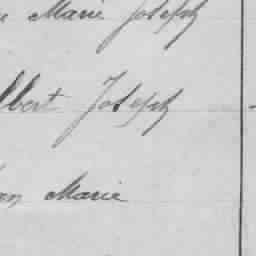 Marie Joseph
lbert Joseph
an Marie